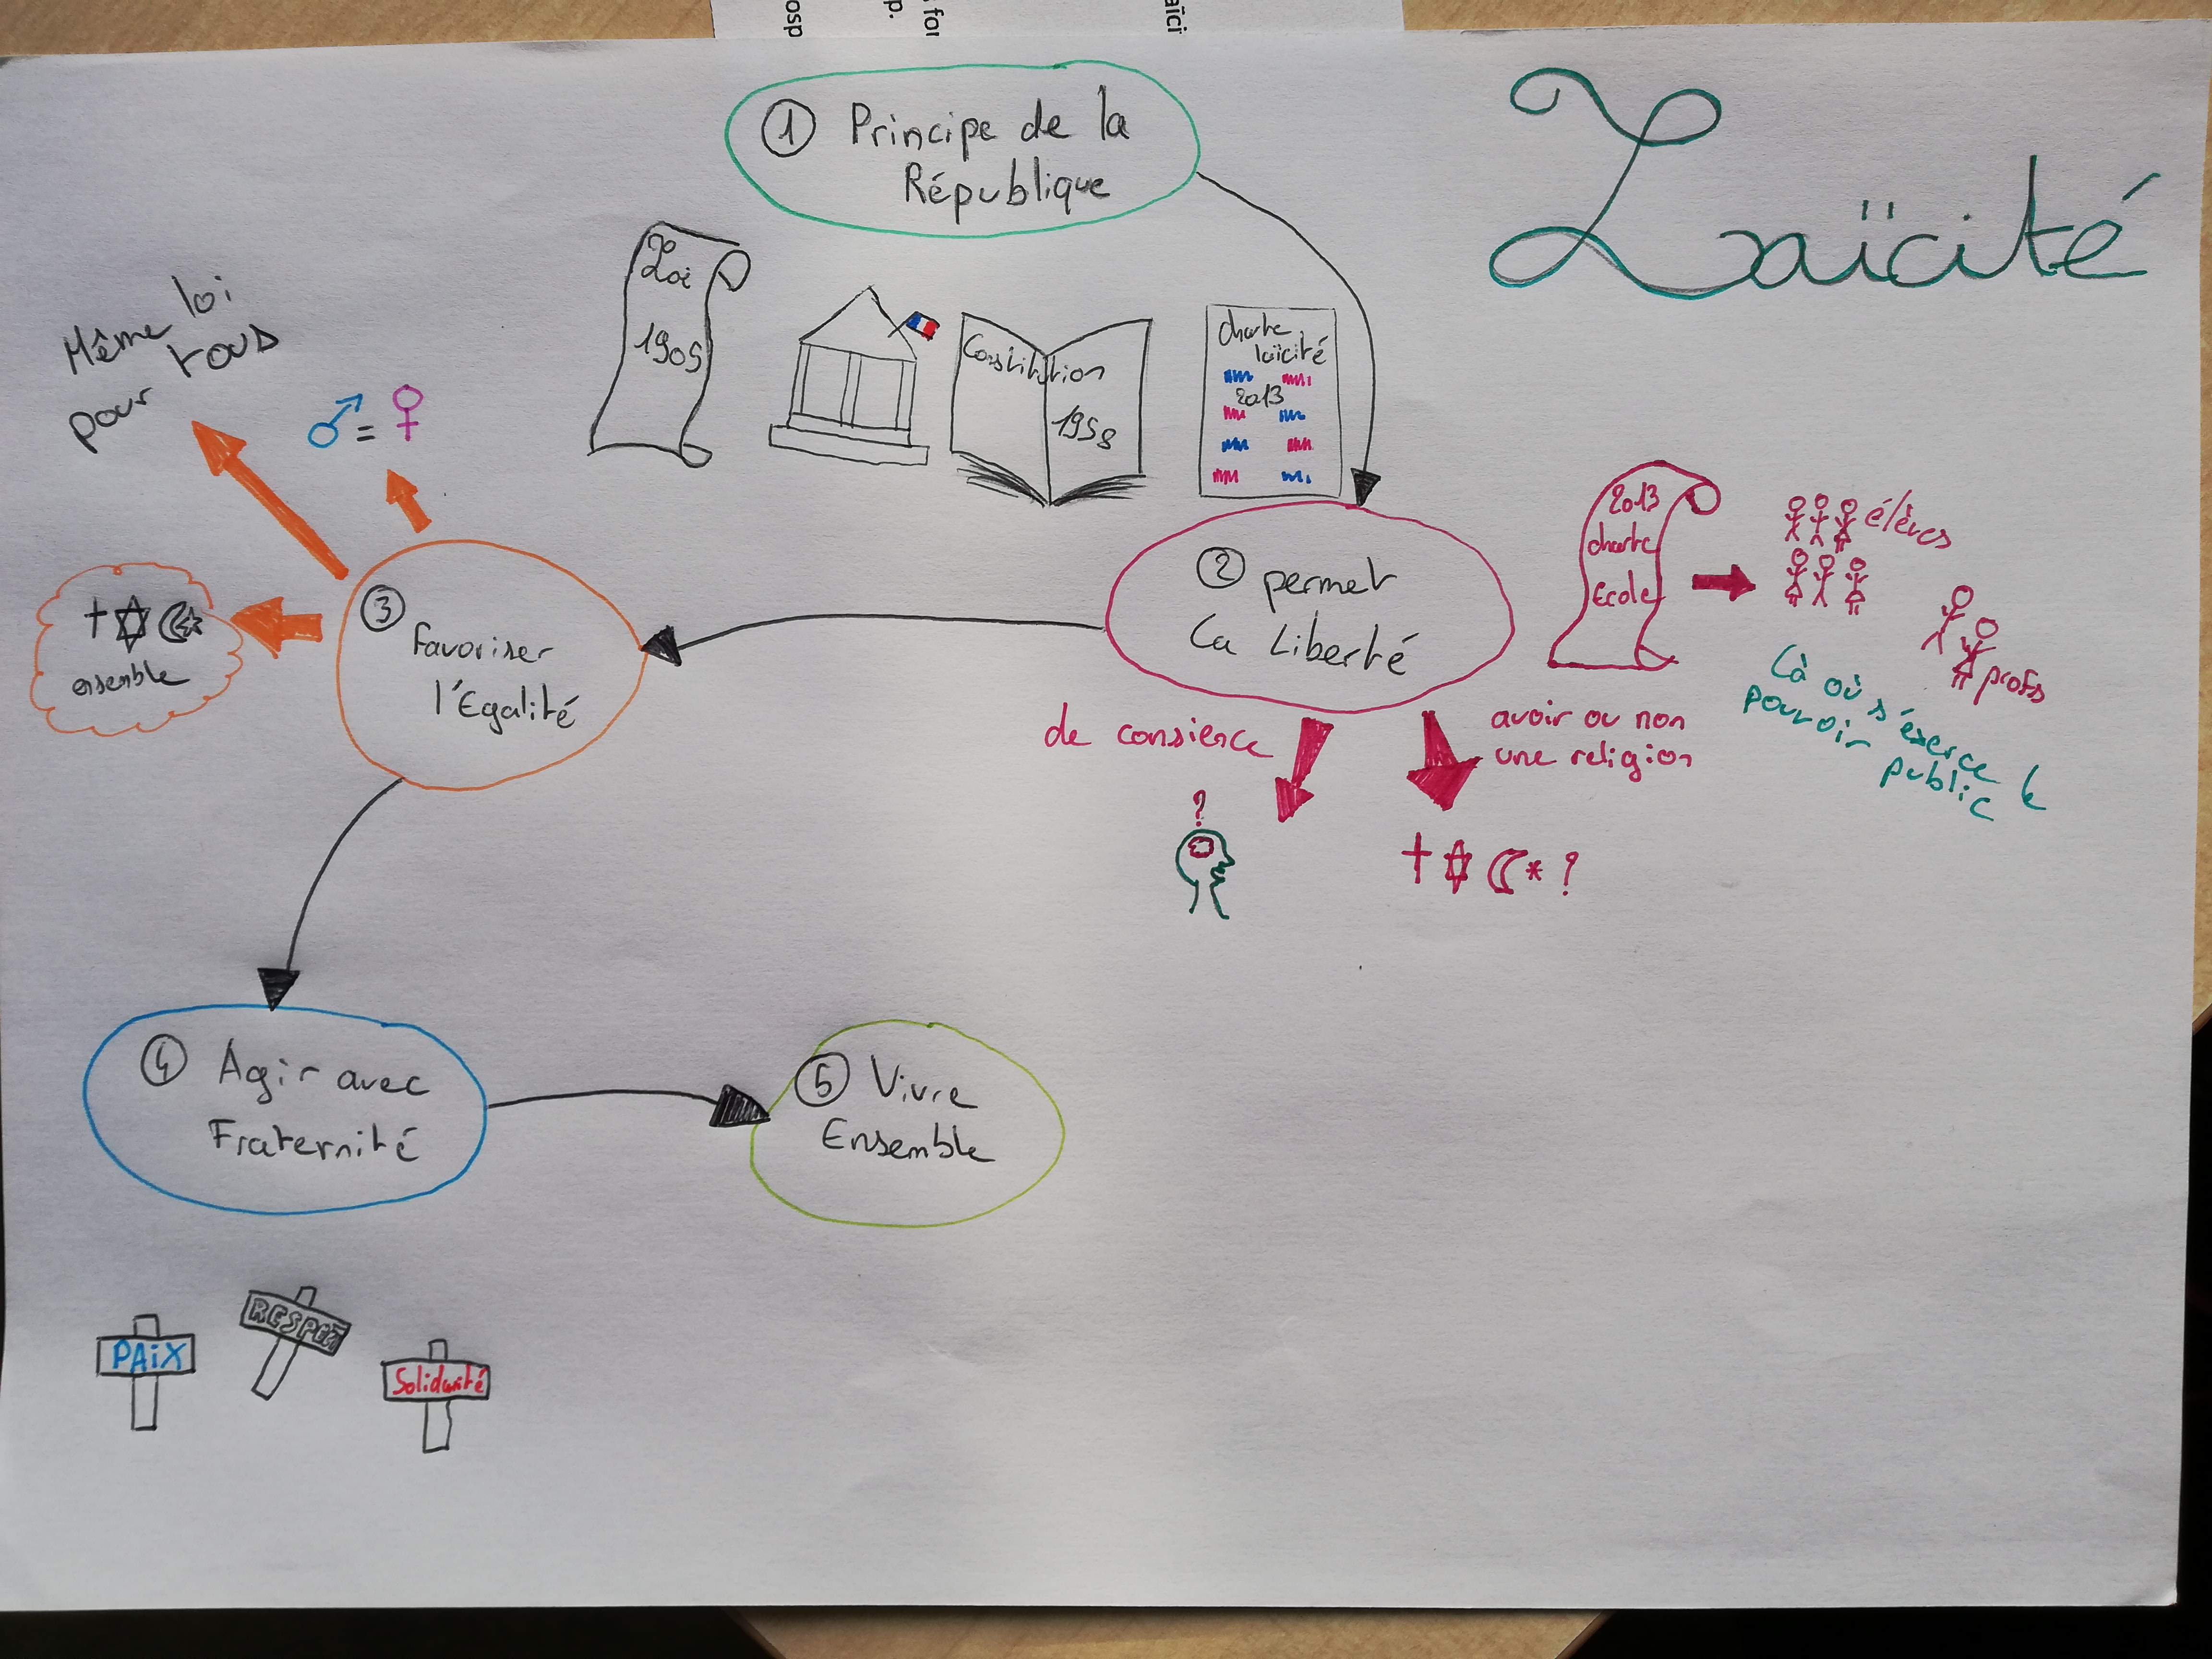 osp
p.
s for
aïci
Laïcité
① Principe de la
République
Loi
1905
Constitution
1958
charte
laïcité
2013
Même loi
pour tous
♂ = ♀
③
Favoriser
l'Egalité
ensemble
② permet
La Liberté
2013
charte
Ecole
élèves
profs
Là où s'éxerce le
pouvoir public
de consience
avoir ou non
une religion
?
?
④ Agir avec
Fraternité
⑤ Vivre
Ensemble
PAiX
RESPECT
Solidarité